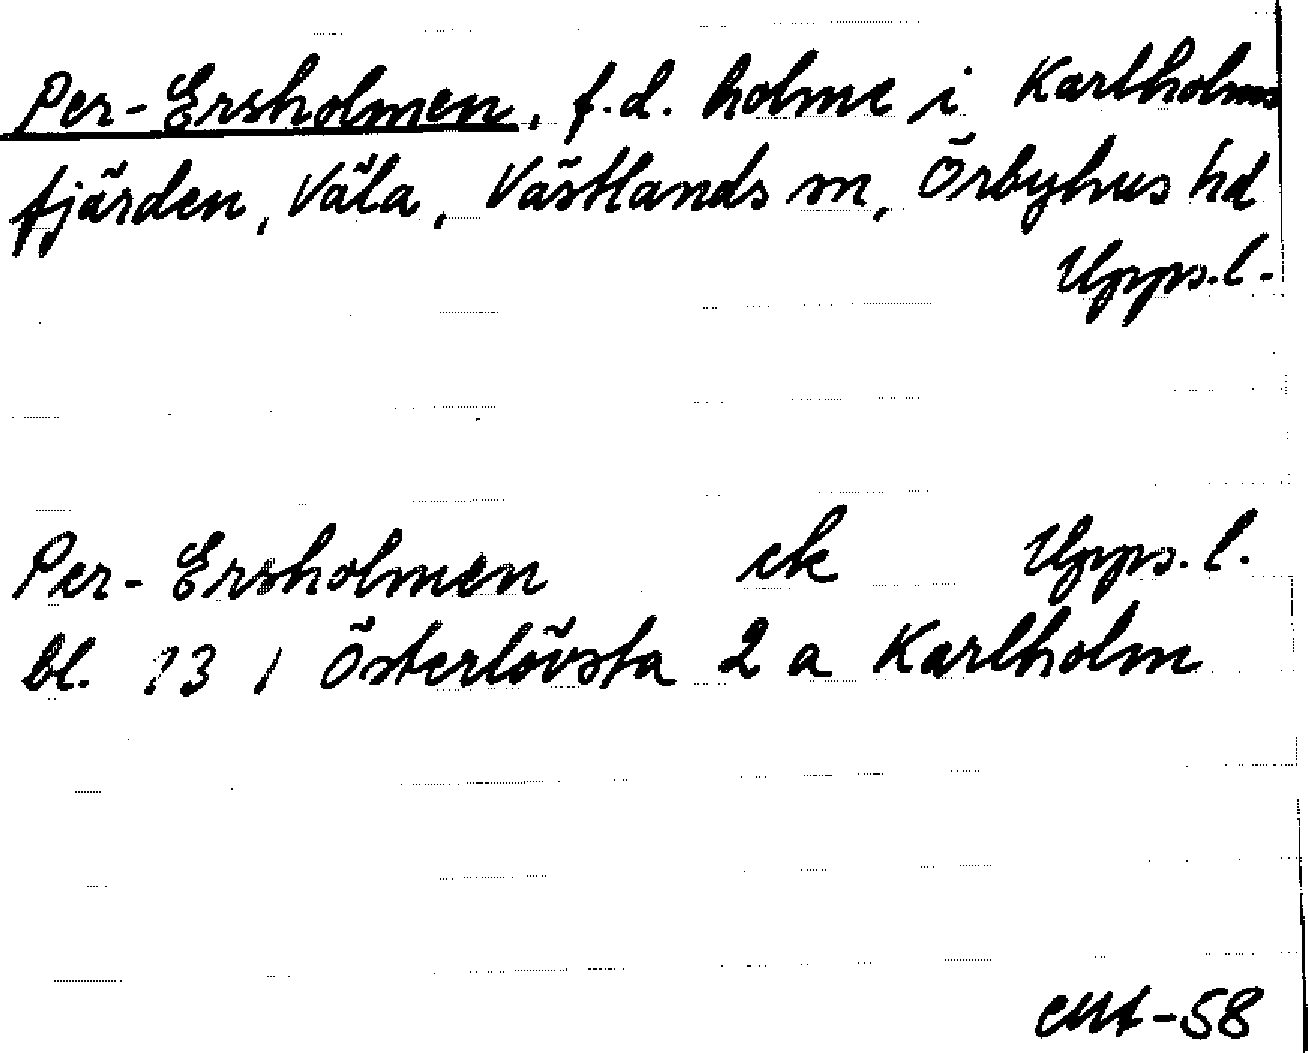 Per-Ersholmen, f.d. holme i Karlholms
fjärden, Väla, Västlands sn, Örbyhus hd
Upps.l.
Per-Ersholmen ek Upps.l.
bl. 13 I Österlövsta 2 a Karlholm